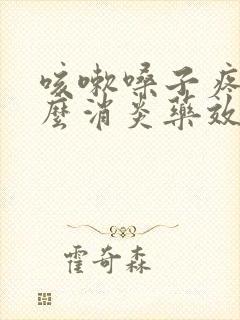 咳嗽嗓子疼
麼消炎藥效
霍奇森